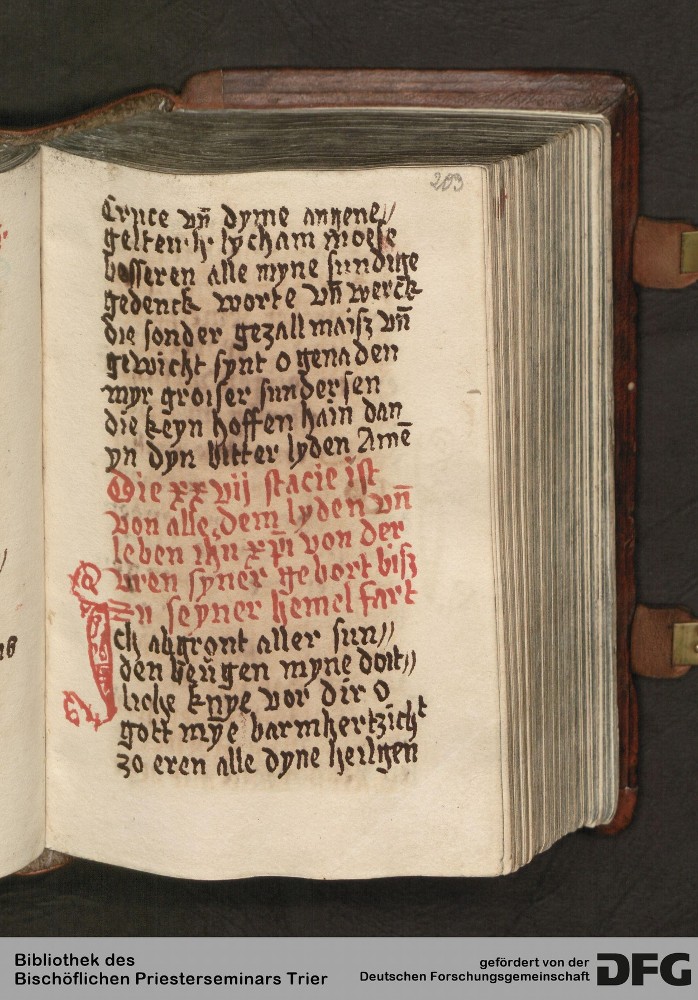 203
Cruce vn̄ dyme angene//
gelten h lycham moese
besseren alle myne sundige
gedenck worte vn̄ werck
die sonder gezall maisz vn̄
gewicht synt O genaden
myr groiser sundersen
die keyn hoffen hain dan
yn dyn bitter lyden Amē
Die xxvij stacie ist
von alle dem lyden vn̄
leben ihū xp̄i von der
vren syner gebort bisz
zu seyner hemel fart
Ich abgront aller sun//
den beugen myne doit//
liche knye vor dir O
gott mȳe barmhertzicht
zo eren alle dyne heilgen
Bibliothek des
Bischöflichen Priesterseminars Trier
gefördert von der
Deutschen Forschungsgemeinschaft
DFG